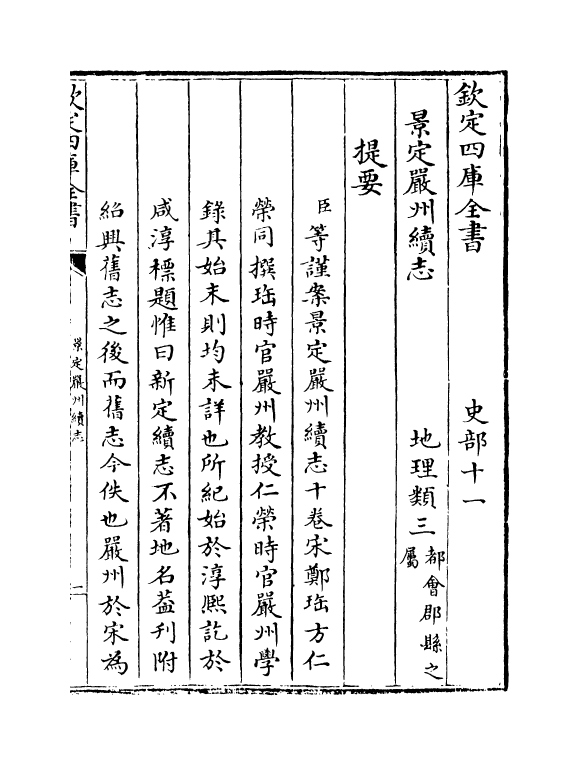 欽定四庫全書　　　史部十一
景定嚴州續志　　　地理類三都會郡縣之屬
提要
臣等謹案景定嚴州續志十卷宋鄭珤方仁
榮同撰珤時官嚴州教授仁榮時官嚴州學
錄其始末則均未詳也所紀始於淳熙訖於
咸淳標題惟曰新定續志不著地名葢刊附
紹興舊志之後而舊志今佚也嚴州於宋為
欽定四庫全書
景定嚴州續志
一